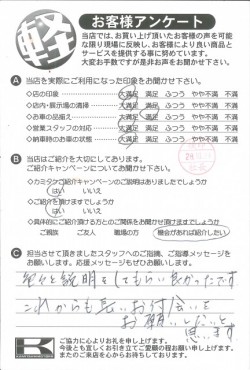 軽
お客様アンケート
当店では、お買い上げ頂いたお客様の声を可能
な限り現場に反映し、お客様により良い商品と
サービスを提供する事に努めています。
大変お手数ですが是非お声をお聞かせ下さい。
A 当店を実際にご利用になった印象をお聞かせ下さい。
◇店の印象 大満足 満足 ふつう やや不満 不満
◇店内・展示場の清掃 大満足 満足 ふつう やや不満 不満
◇お車の品揃え 大満足 満足 ふつう やや不満 不満
◇営業スタッフの対応 大満足 満足 ふつう やや不満 不満
◇納車時のお車の状態 大満足 満足 ふつう やや不満 不満
B 当店をご紹介を大切にしております。
ご紹介キャンペーンについてお聞かせ下さい。
◇カミタケご紹介キャンペーンのご説明はありましたでしょうか
はい いいえ
◇ご紹介を頂けますでしょうか
はい いいえ
◇具体的にご紹介頂ける方とのご関係をお聞かせ頂けますでしょうか
ご親族 ご友人 職場の方 機会があれば紹介したい
C 担当させて頂きましたスタッフへのご指摘、ご指導メッセージを
お願いします。応援メッセージもぜひお願いします。
色々と説明をしてもらい良かったです
これからも長いお付会いを
お願いしたいと
思います
K
ご協力に心よりお礼を申し上げます。
今後とも宜しくお引き立てご愛顧の程お願い申し上げます。
またのご来店を心からお待ちしております。